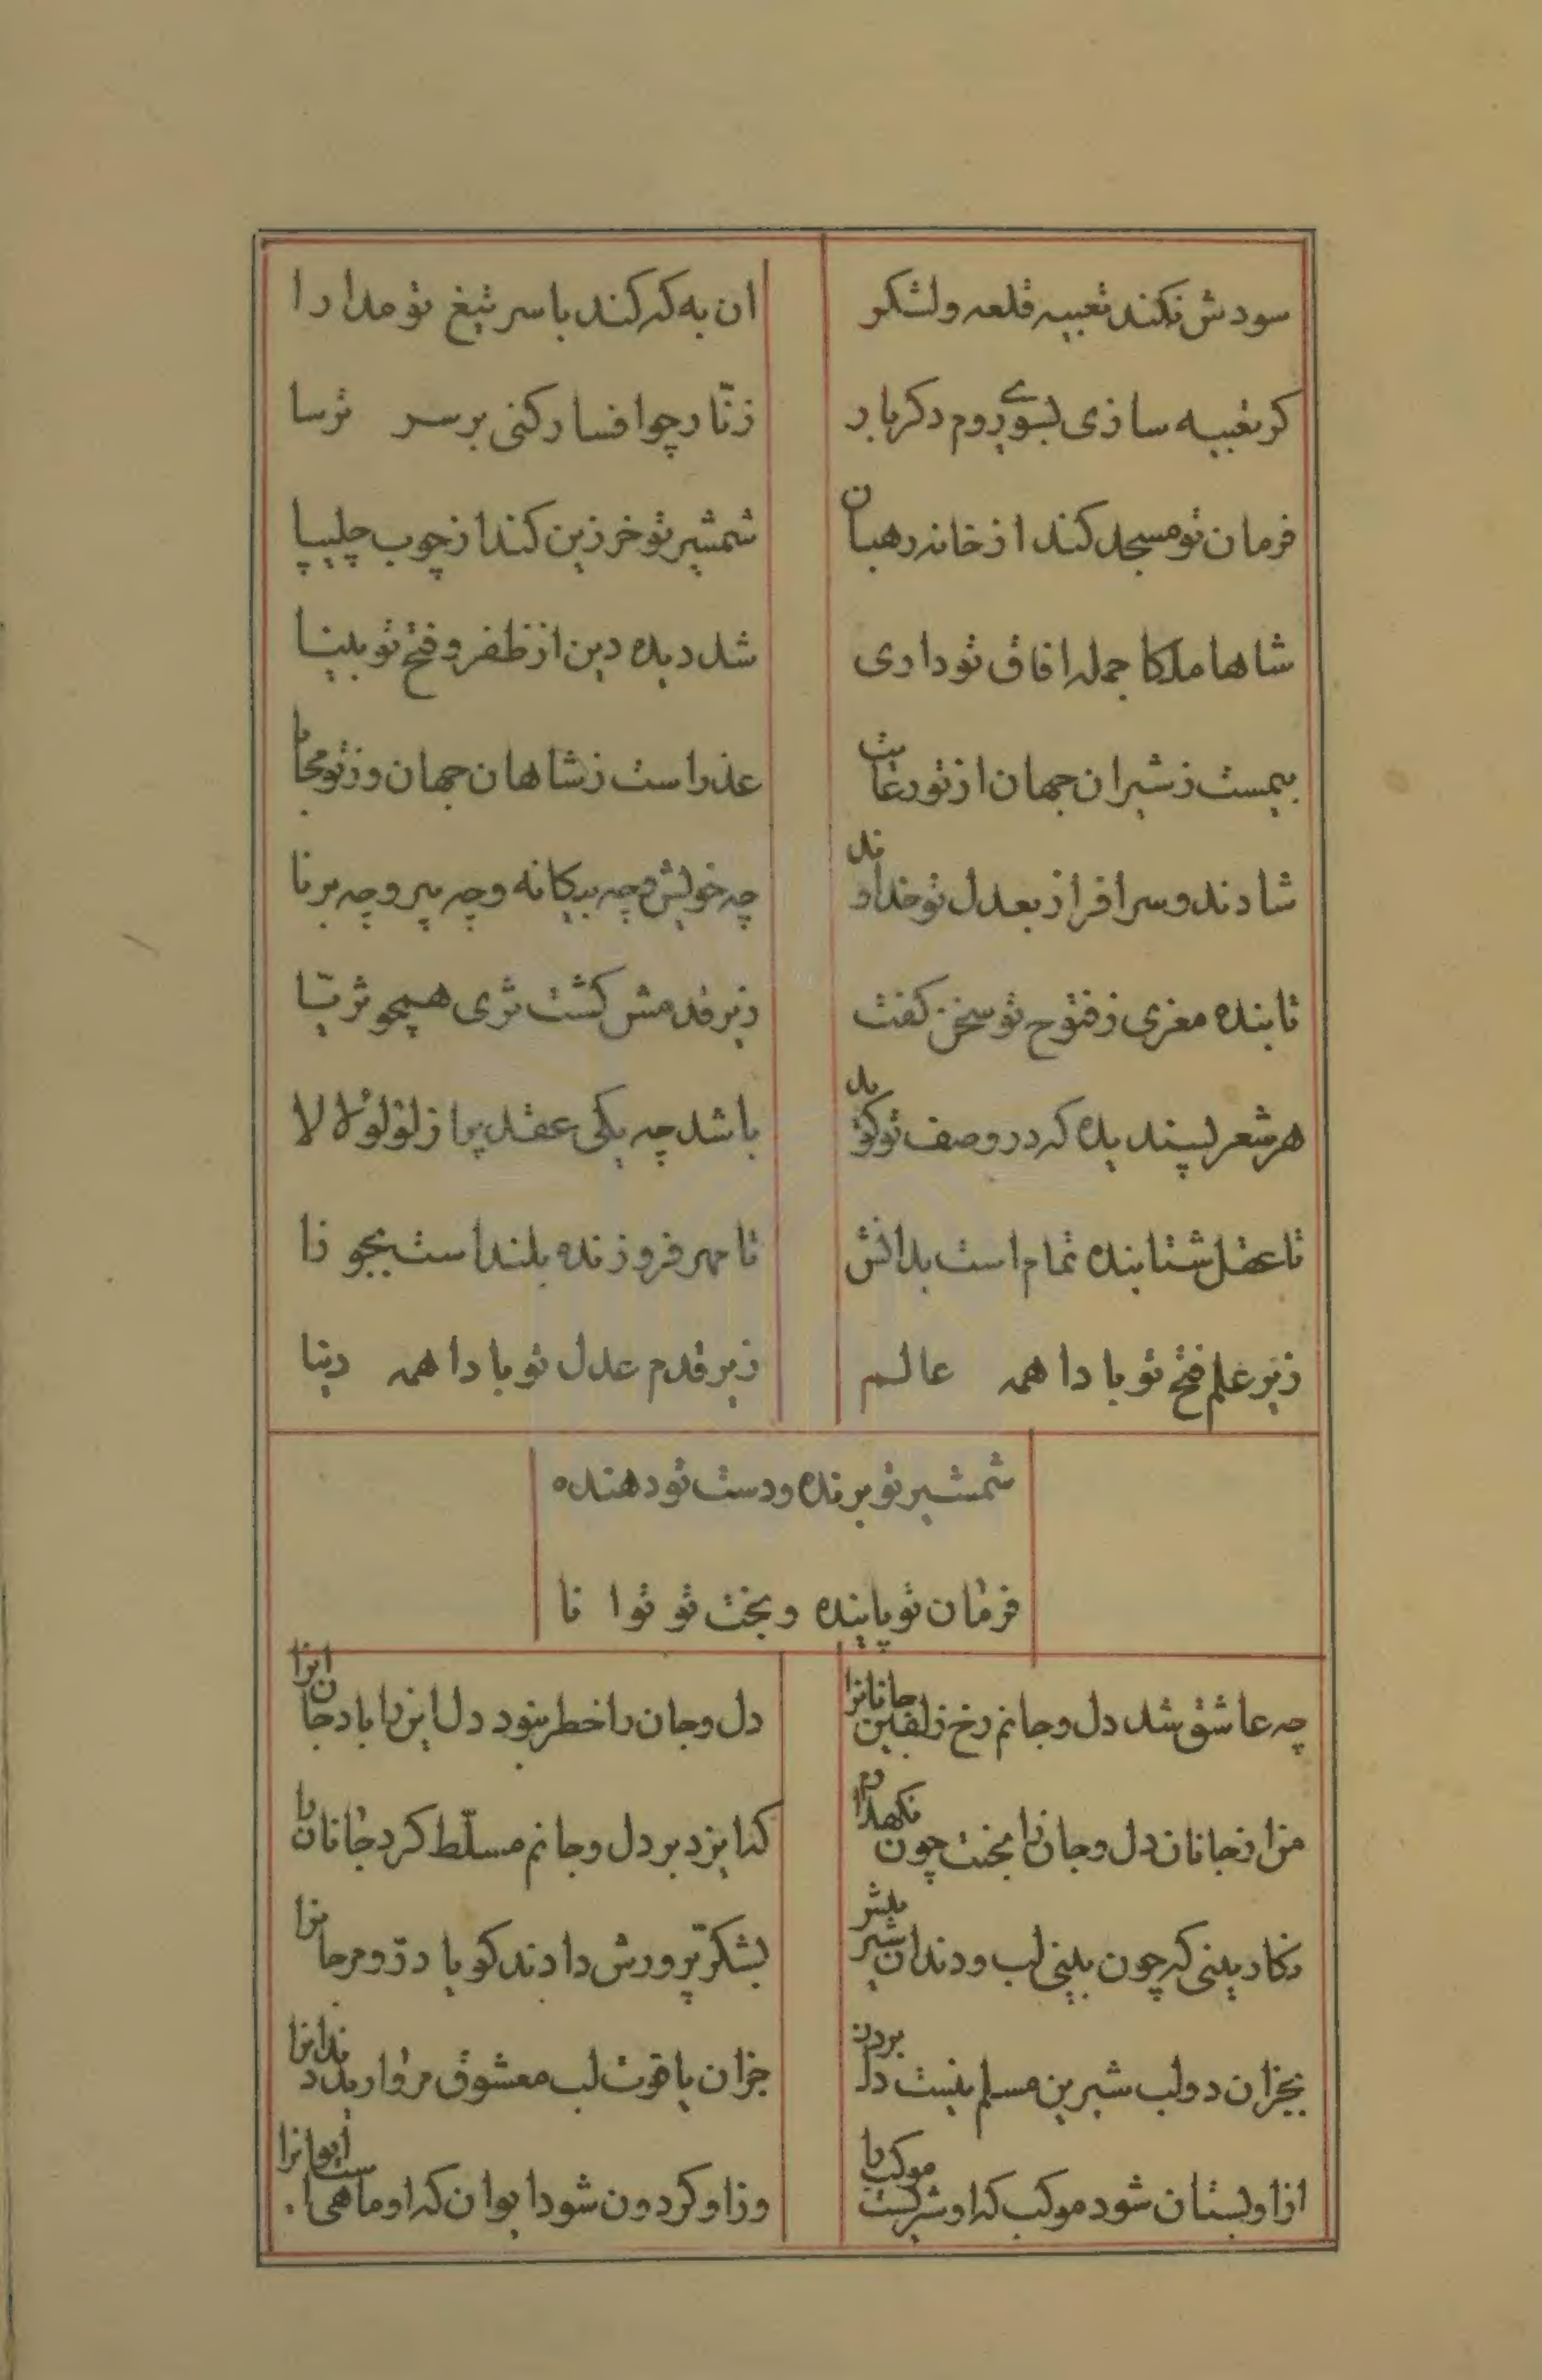 سودش نکند تعبیه قلعه ولشکر ان به که کند باسر تیغ تو مدارا
کر تعبیه سازی بسوی روم دکر بار زنّار چو افسار کنی برسر ترسا
فرمان تو مسجد کند از خانه رهبان شمشیر تو خرزین کند از چوب چلیپا
شاها ملکا جمله افاق تو داری شد دیده دین از ظفر و فتح تو بینا
بیمست ز شیران جهان از تو رعایت عذراست ز شاهان جهان وز تو محابا
شادند و سرافراز بعدل تو خداوند چه خویش و چه بیکانه و چه پیر و چه برنا
تا بنده معزی ز فتوح تو سخن کفت زیر قدمش کشت ثری همچو ثریّا
هر شعر پسندیده که در وصف تو کوید باشد چه یکی عقد پر از لؤلؤ لالا
تا عقل شتابنده تمام است بدانش تا مهر فروزنده بلند است بجوزا
زیر علم فتح تو بادا همه عالم زیر قدم عدل تو بادا همه دینا
شمشیر تو برنده و دست تو دهنده
فرمان تو پاینده و بخت تو توانا
چه عاشق شد دل و جانم رخ زلفین جانانرا دل و جان را خطر نبود دل این را باد جان انرا
من از جانان دل و جان را بخت چون نکهدارم که ایزد بر دل و جانم مسلّط کرد جانان را
نکار ینی که چون بینی لب و دندان شیرینش بشکّر پرورش دادند کویا درّ و مرجانرا
بجز ان دولب شیرین مسلم نیست دل بردن جز ان یاقوت لب معشوق مروارید دندانرا
از او بستان شود موکب که او شرکست موکب را وز او کردون شود ایوان که او ماهی است ایوانرا